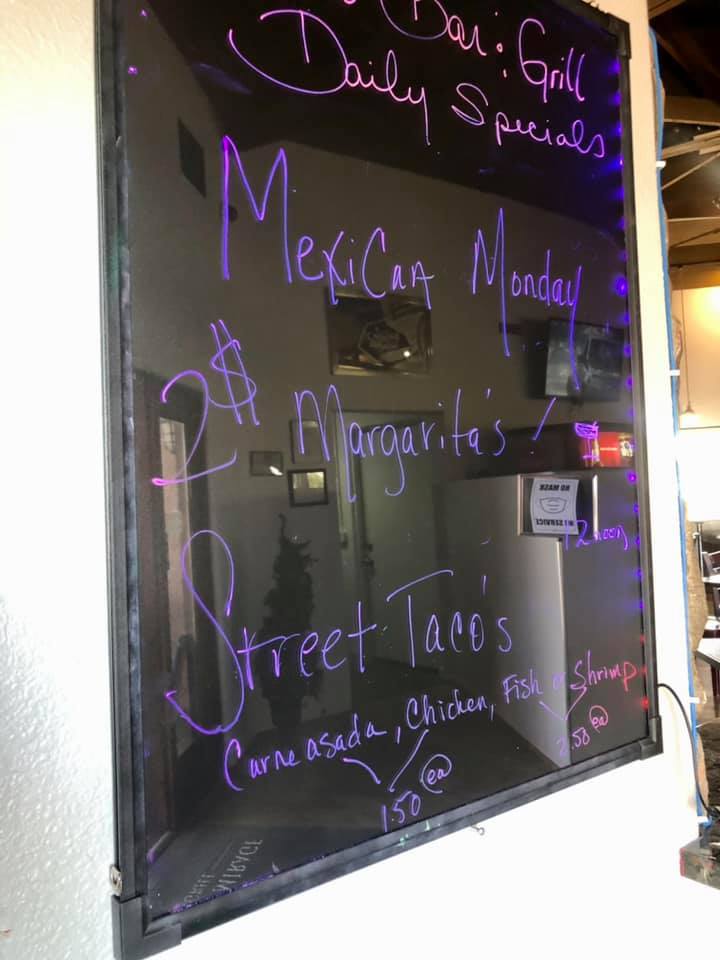 Bar & Grill
Daily Specials
Mexican Monday
2$ Margarita's!
NO MASK
NO SERVICE
12 noon
Street Taco's
Carne asada, Chicken, Fish or Shrimp
2.50 ea
1.50 ea
MIRAGE
GRILL